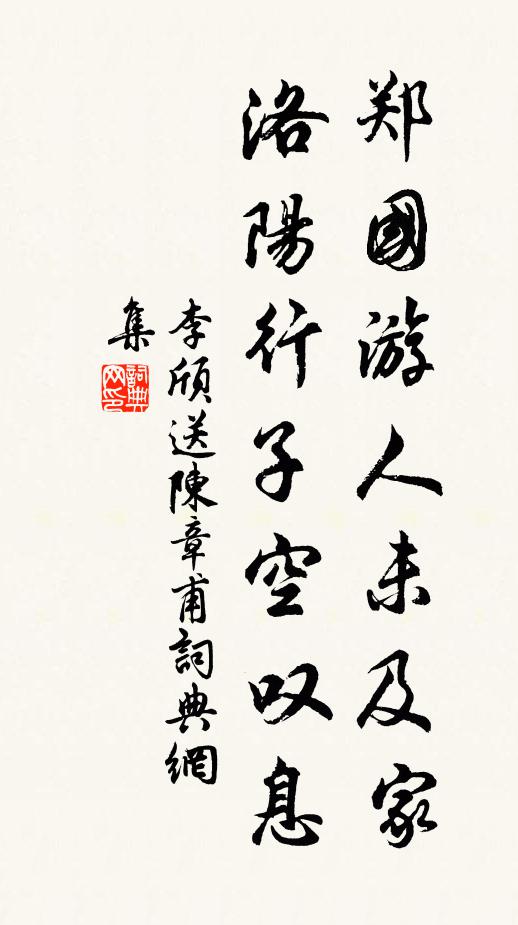 郑國游人未及家
洛陽行子空叹息
李頎送陳章甫詞典網
集
詞典网印